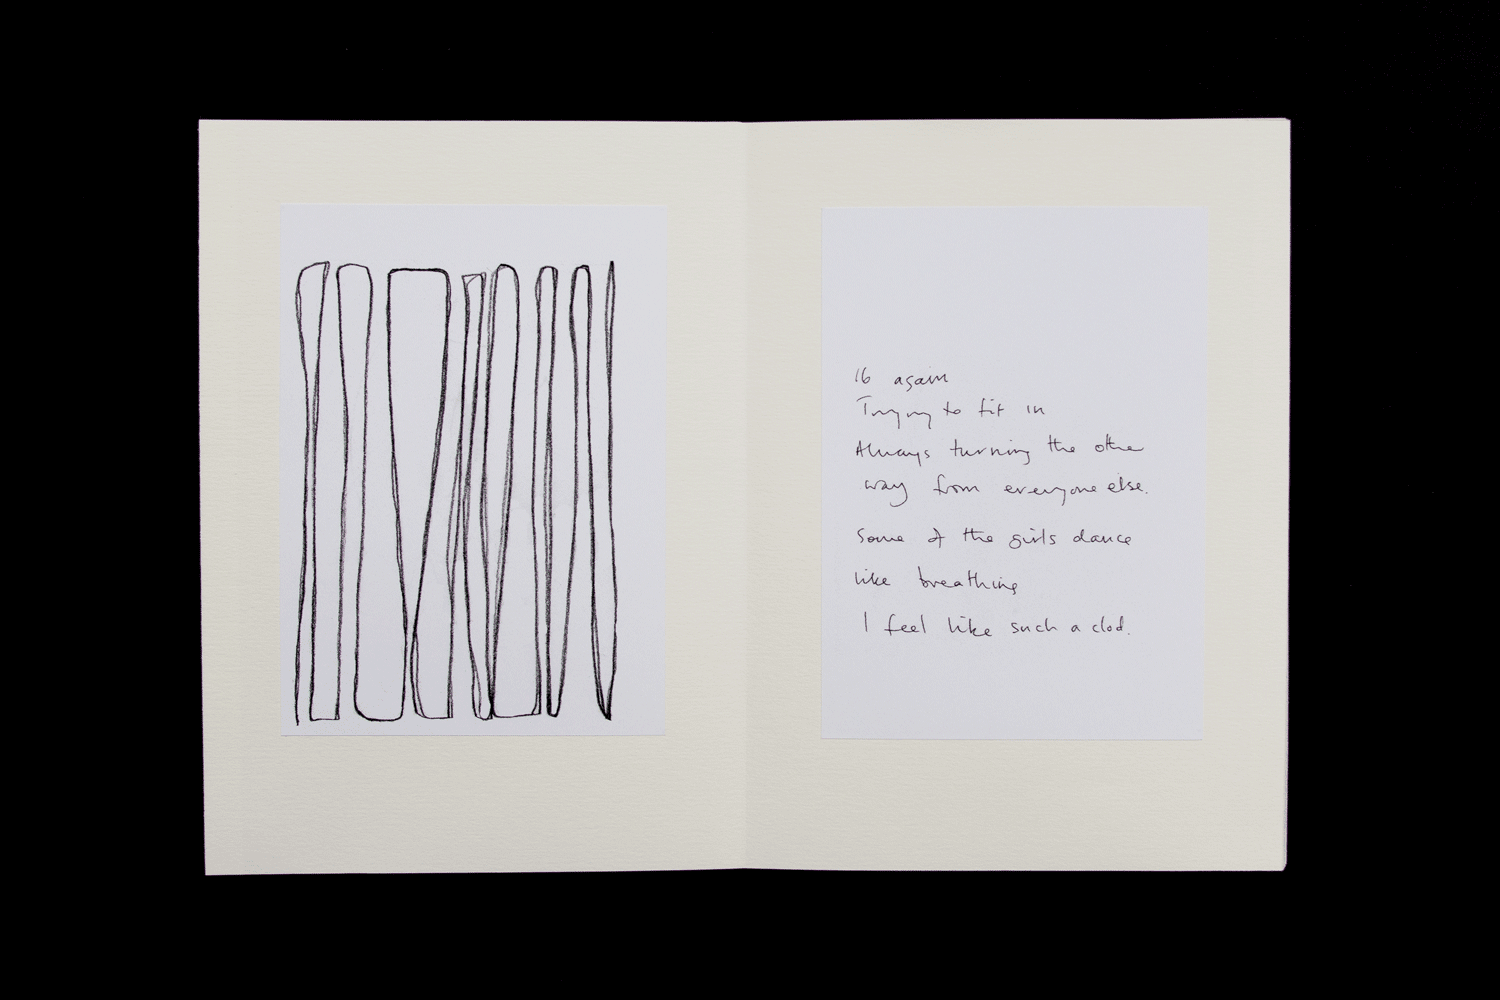 16 again
Trying to fit in
Always turning the other
way from everyone else.
Some of the girls dance
like breathing
I feel like such a clod.